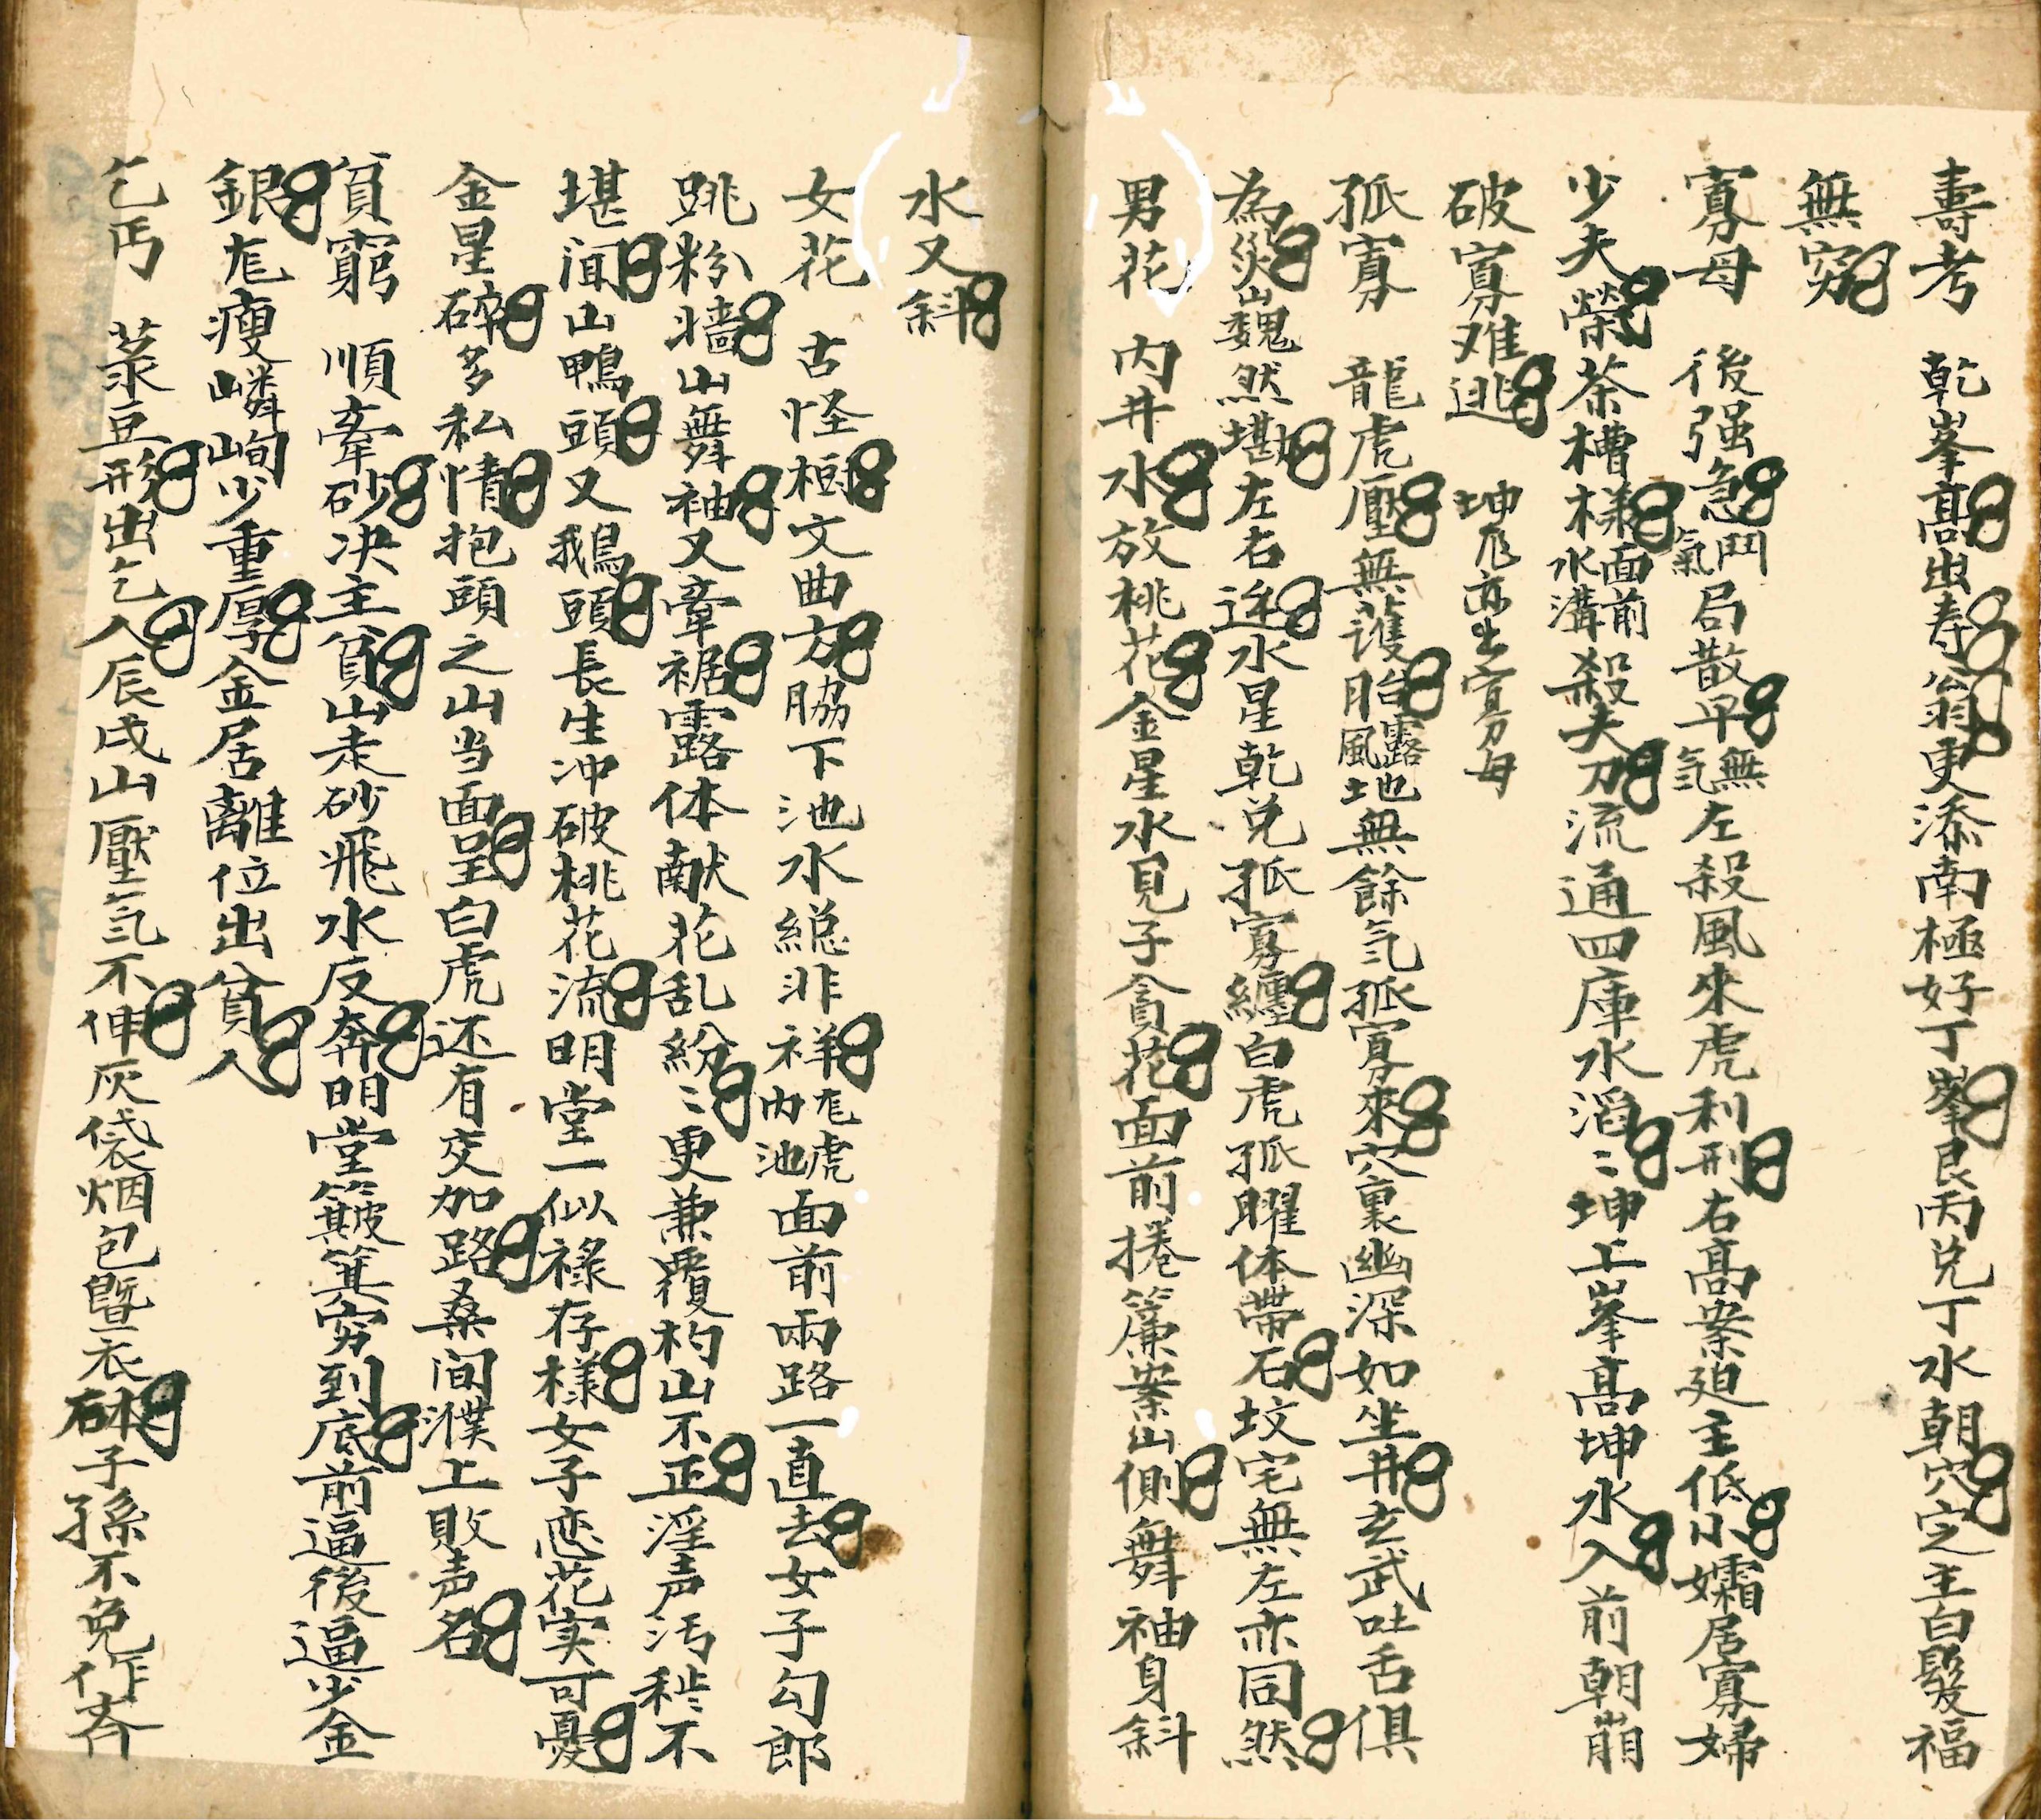 壽考 乾峯髙出寿翁更添南極好丁峯艮丙兑丁水朝穴定主白髮福
無窮
寡母 後强急鬥氣局散早無氣左殺風來虎利刑右髙案廹主低小孀居寡婦
少夫榮茶槽樣面前水溝殺夫刀流通四庫水滔〻坤上峯髙坤水入前朝崩
破寡难逃 坤尨亦出寡母
孤寡 龍虎壓無護胎露風地無餘氣孤寡來穴裏幽深如坐井玄武吐舌俱
為災巍然堪左右逆水星乾兑孤寡纏白虎孤曜体帶石坟宅無左亦同然
男花 内井水放桃花金星水見子貪花面前捲簾案山側舞袖身斜
水又斜
女花 古怪樹文曲方脇下池水総非祥尨虎内池面前兩路一直去女子勾郎
跳粉墙山舞袖又牽裾露体献花乱紛〻更兼覆杓山不正淫声污秽不
堪闻山鴨頭又鵝頭長生冲破桃花流明堂一似祿存樣女子恋花实可憂
金星碎多私情抱頭之山当面呈白虎还有交加路桑间濮上敗声名
貧窮 順牽砂决主貧山走砂飛水反奔明堂簸箕窮到底前逼後逼少金
銀尨瘦嶙峋少重厚金居離位出貧人
乞丐 菉豆形出乞人辰戌山壓氣不伸灰袋烟包曁衣砵子孫不免作斉